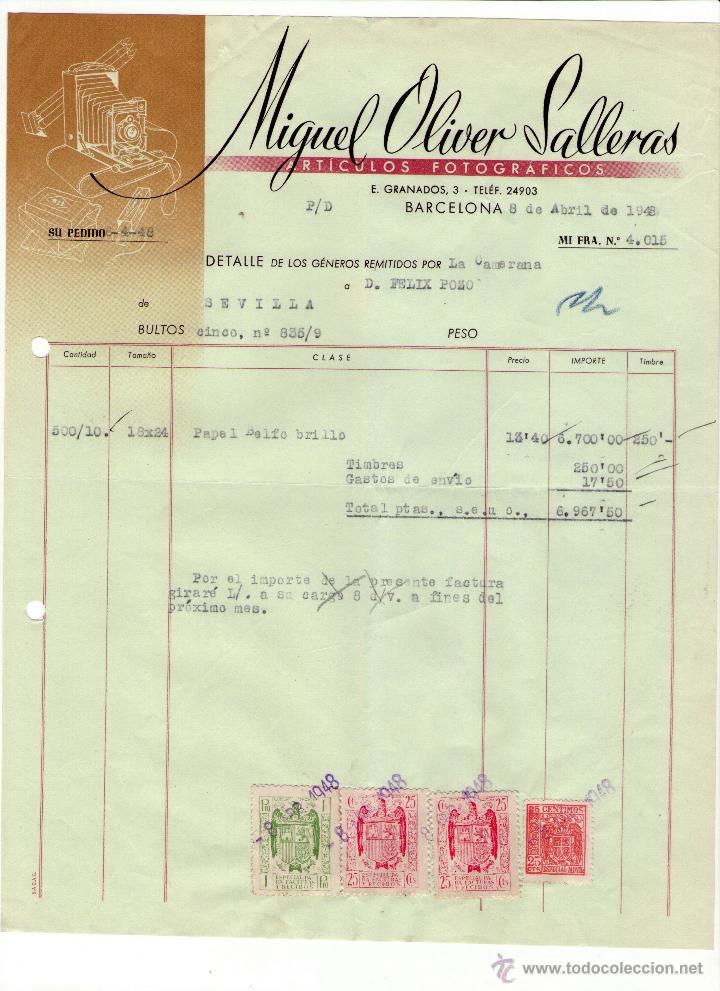 Miguel Oliver Salleras
ARTÍCULOS FOTOGRÁFICOS
E. GRANADOS, 3 - TELÉF. 24903
P/D BARCELONA 8 de Abril de 1948
SU PEDIDO 6-4-48 MI FRA. N.º 4.015
DETALLE DE LOS GÉNEROS REMITIDOS POR La Camerana
a D. FELIX POZO
de SEVILLA
BULTOS cinco, nº 835/9 PESO
Cantidad Tamaño CLASE Precio IMPORTE Timbre
500/10. 18x24 Papel Belfo brillo 13'40 6.700'00 250'-
Timbres 250'00
Gastos de envío 17'50
Total ptas., s.e.u o., 6.967'50
Por el importe de la presente factura
giraré L/. a su cargo 8 d/v. a fines del
próximo mes.
1948 1948 1948 1948
1 PTA 1 Cts 25 Cts 25 25 CENTIMOS
1 ESPECIAL PARA FACTURAS Y RECIBOS PTA
25 ESPECIAL PARA FACTURAS Y RECIBOS Cts
25 ESPECIAL PARA FACTURAS Y RECIBOS Cts
25 ESPECIAL MOVIL
todocoleccion
www.todocoleccion.net